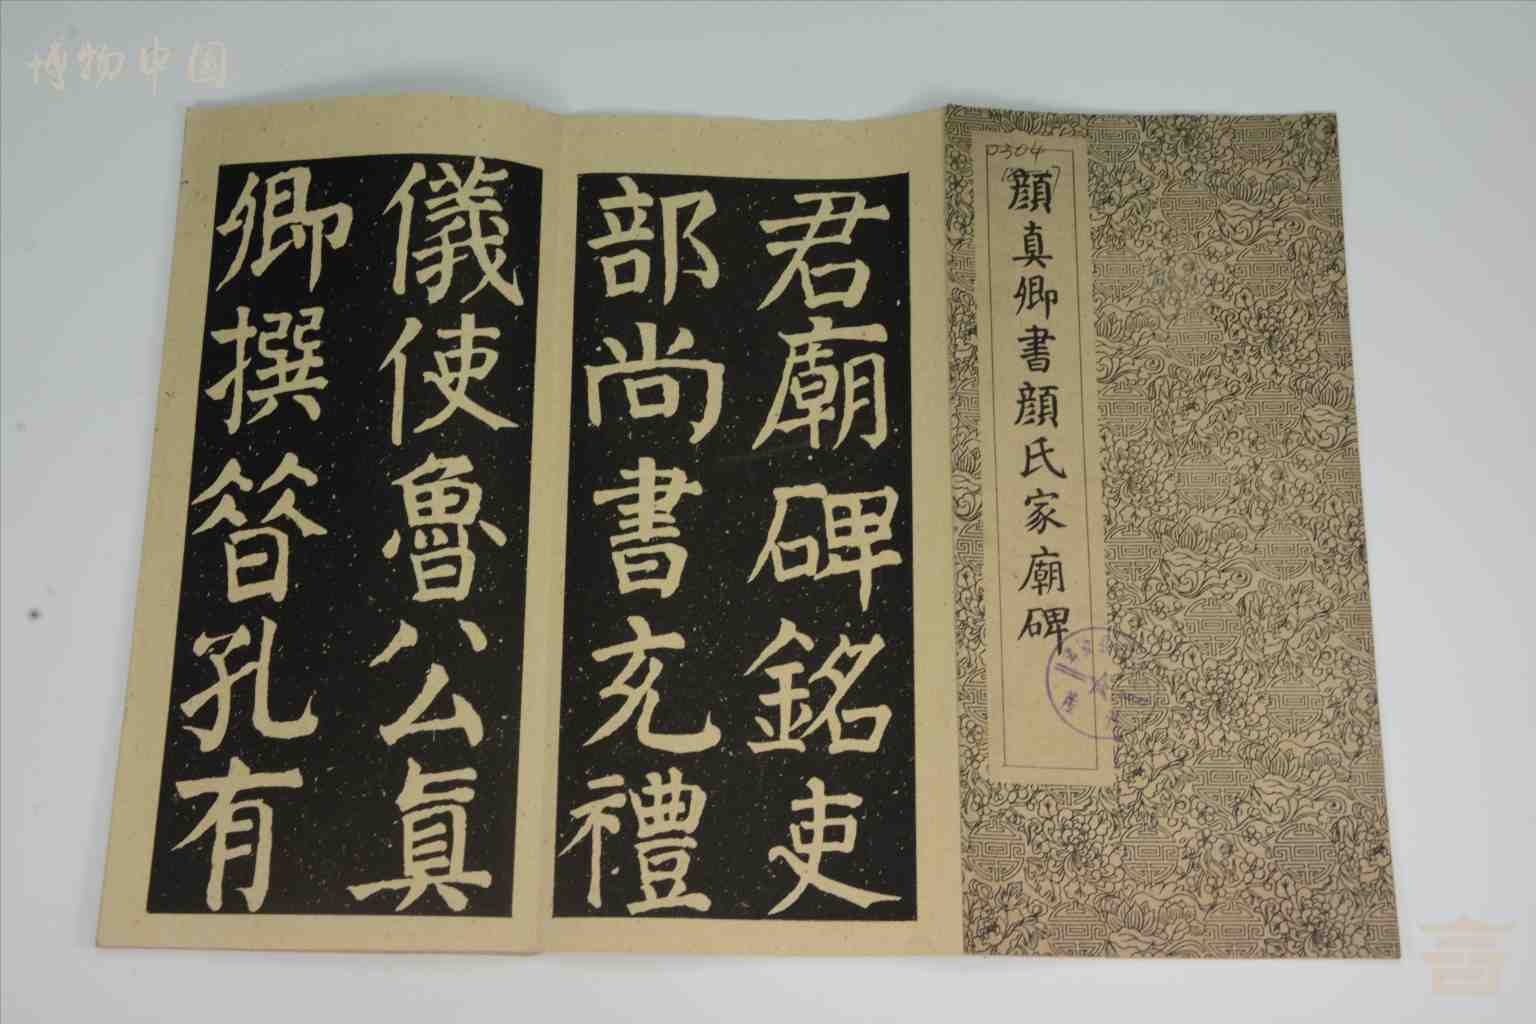 博物中国
0304
顔真卿書顔氏家廟碑
君廟碑銘吏
部尚書充禮
儀使魯公真
卿撰晉孔有